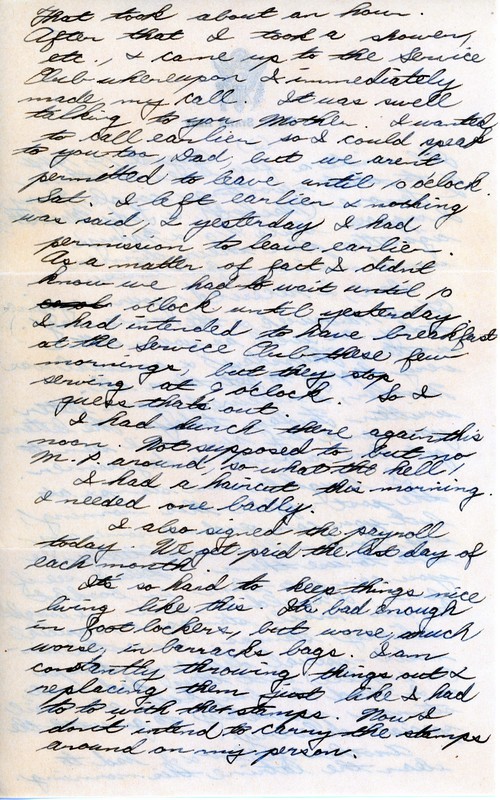 That took about an hour.
After that I took a shower,
etc., & came up to the Service
Club whereupon I immediately
made my call. It was swell
talking to you Mother. I wanted
to call earlier so I could speak
to you too, Dad, but we aren't
permitted to leave until 10 oclock.
Sat. I left earlier & nothing
was said, & yesterday I had
permission to leave earlier.
As a matter of fact I didn't
know we had to wait until 10
oclock until yesterday.
I had intended to have breakfast
at the Service Club these few
mornings, but they stop
serving at 9 o'clock. So I
guess that's out.
I had lunch there again this
noon. Not supposed to, but no
M.P. around, so what the hell!
I had a haircut this morning.
I needed one badly.
I also signed the payroll
today. We get paid the last day of
each month.
It's so hard to keep things nice
living like this. It's bad enough
in foot lockers, but worse, much
worse, in barracks bags. I am
constantly throwing things out &
replacing them just like I had
to to with the stamps. Now I
don't intend to carry the stamps
around on my person.